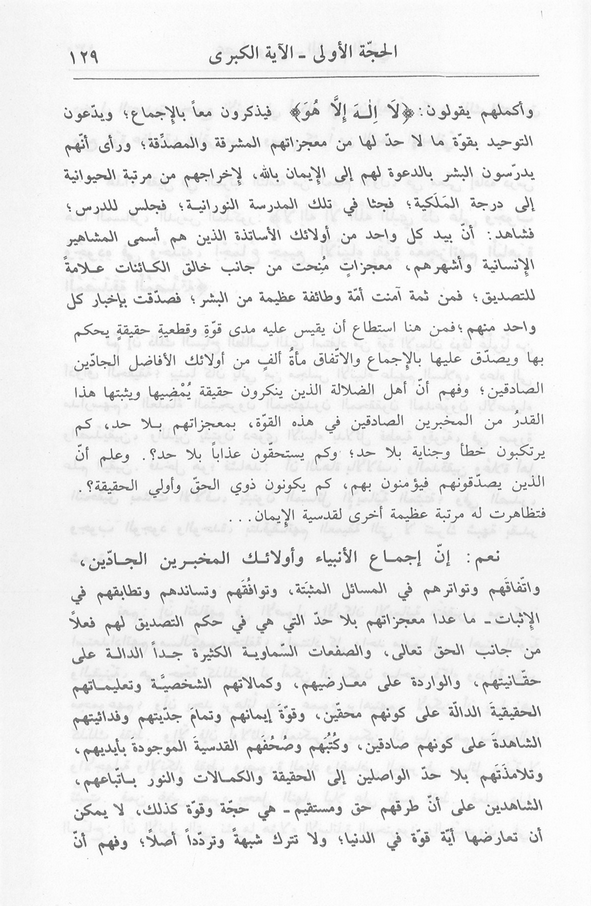 الحجّة الأولى - الآية الكبرى ١٢٩
وأكملهم يقولون: ﴿لَا اِلٰهَ اِلَّا هُوَ﴾ فيذكرون معاً بالإجماع؛ ويدّعون
التوحيد بقوّة ما لا حدّ لها من معجزاتهم المشرقة والمصدِّقة؛ ورأى أنّهم
يدرّسون البشر بالدعوة لهم إلى الإيمان بالله، لإخراجهم من مرتبة الحيوانية
إلى درجة المَلَكية؛ فجثا في تلك المدرسة النورانية؛ فجلس للدرس؛
فشاهد: أنّ بيد كل واحد من أولائك الأساتذة الذين هم أسمى المشاهير
الإنسانية وأشهرهم، معجزاتٍ مُنحت من جانب خالق الكائنات علامةً
للتصديق؛ فمن ثمة آمنت أمّة وطائفة عظيمة من البشر؛ فصدّقت بإخبار كل
واحد منهم؛ فمن هنا استطاع أن يقيس عليه مدى قوّةِ وقطعيةِ حقيقةٍ يحكم
بها ويصدّق عليها بالإجماع والاتّفاق مأةُ ألفٍ من أولائك الأفاضل الجادّين
الصادقين؛ وفهم أنّ أهل الضلالة الذين ينكرون حقيقة يُمْضِيها ويثبتها هذا
القدرُ من المخبرين الصادقين في هذه القوّة، بمعجزاتهم بلا حد، كم
يرتكبون خطأ وجناية بلا حد؛ وكم يستحقّون عذاباً بلا حد؟. وعلم أنّ
الذين يصدّقونهم فيؤمنون بهم، كم يكونون ذوي الحق وأولي الحقيقة؟.
فتظاهرت له مرتبة عظيمة أخرى لقدسية الإيمان...
نعم: إنّ إجماع الأنبياء وأولائك المخبرين الجادّين،
واتّفاقَهم وتواترهم في المسائل المثبَتة، وتوافُقَهم وتساندهم وتطابقهم في
الإثبات - ما عدا معجزاتهم بلا حدّ التي هي في حكم التصديق لهم فعلاً
من جانب الحق تعالى، والصفعات السّماوية الكثيرة جداً الدالة على
حقّانيتهم، والواردة على معارضيهم، وكمالاتهم الشخصيَّة وتعليماتهم
الحقيقيةِ الدالّة على كونهم محقّين، وقوّة إيمانهم وتمام جديتهم وفدائيتهم
الشاهدةِ على كونهم صادقين، وكُتُبُهم وصُحُفُهم القدسية الموجودة بأيديهم،
وتلامذتَهم بلا حدّ الواصلين إلى الحقيقة والكمالات والنور باتّباعهم،
الشاهدين على أنّ طرقهم حق ومستقيم - هي حجّة وقوّة كذلك، لا يمكن
أن تعارضها أيّة قوّة في الدنيا؛ ولا تترك شبهةً وتردّداً أصلاً؛ وفهم أنّ